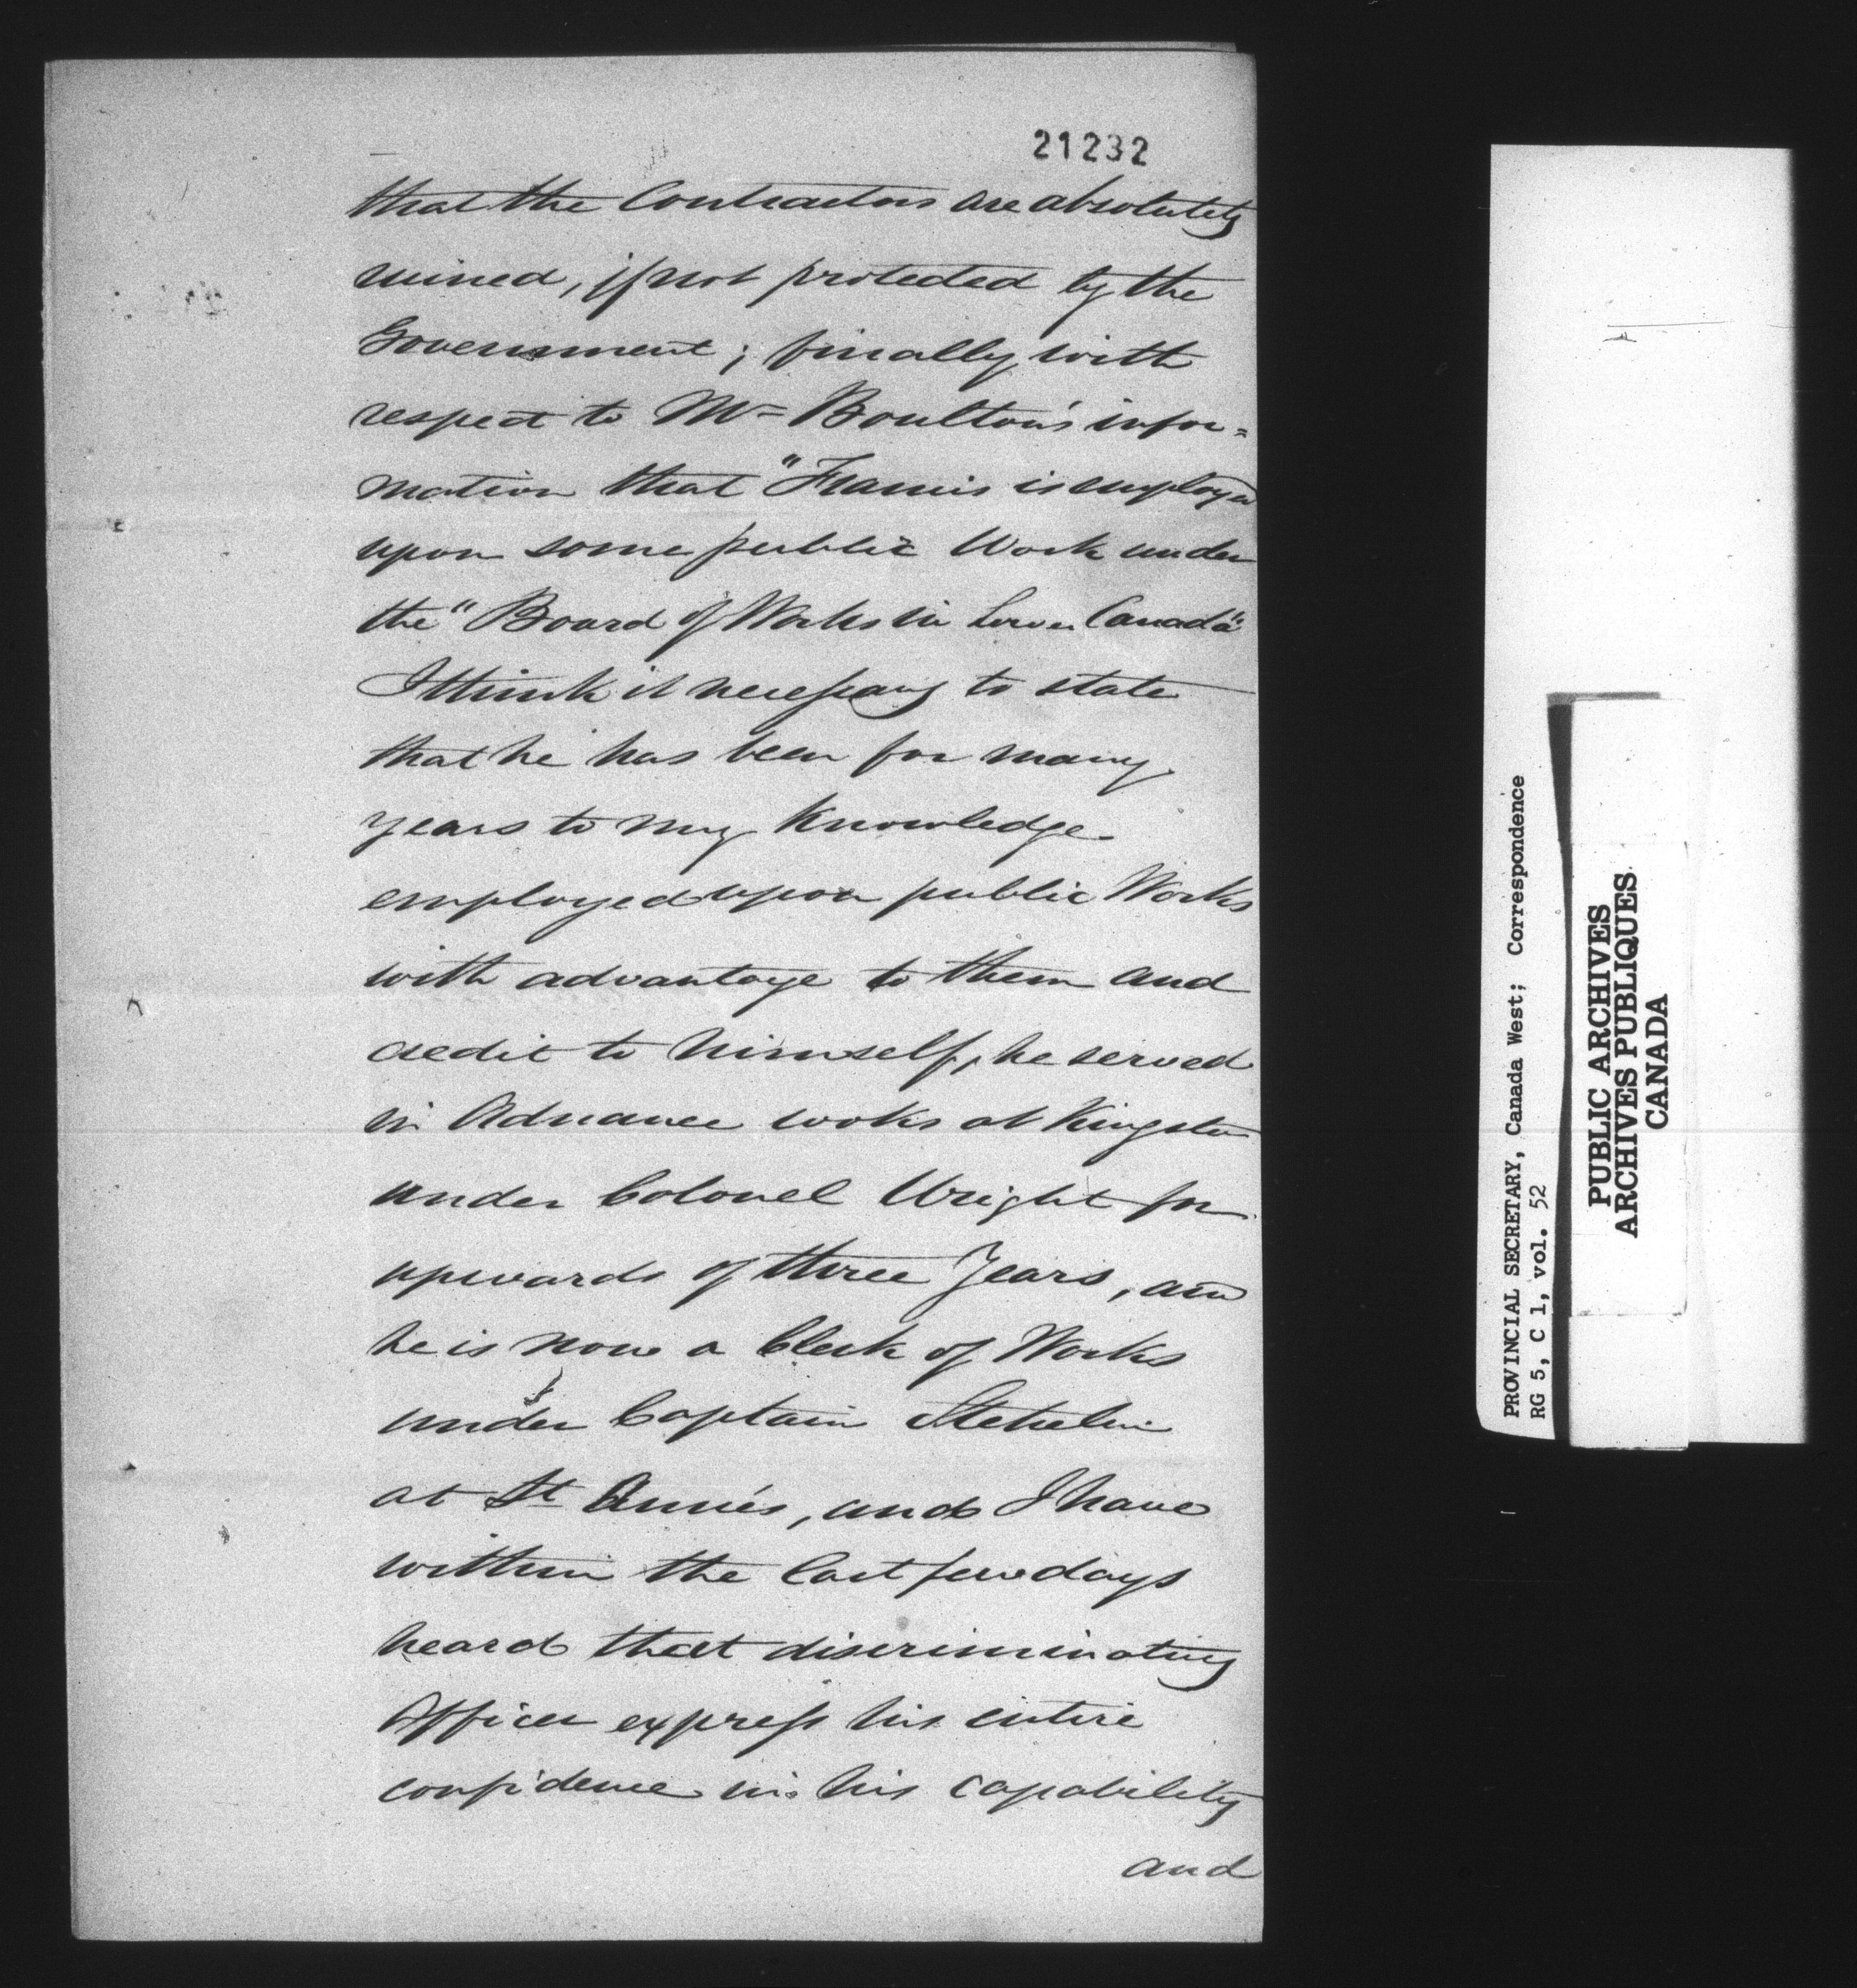 21232
that the Contractors are absolutely
ruined, if not protected by the
Government; finally with
respect to Mr Boulton's infor=
mation that "Francis is employed
upon some public Work under
the "Board of Works in Lower Canada"
I think it necessary to state
that he has been for many
years to my Knowledge
employed upon public Works
with advantage to them and
credit to himself, he served
in Ordnance works at Kingston
under Colonel Wright for
upwards of three Years, and
he is now a Clerk of Works
under Captain Stehelin
at St Anne's, and I have
within the last few days
heard that discriminating
Officer express his entire
confidence in his capability
and
PROVINCIAL SECRETARY, Canada West; Correspondence
RG 5, C 1, vol. 52
PUBLIC ARCHIVES
ARCHIVES PUBLIQUES
CANADA